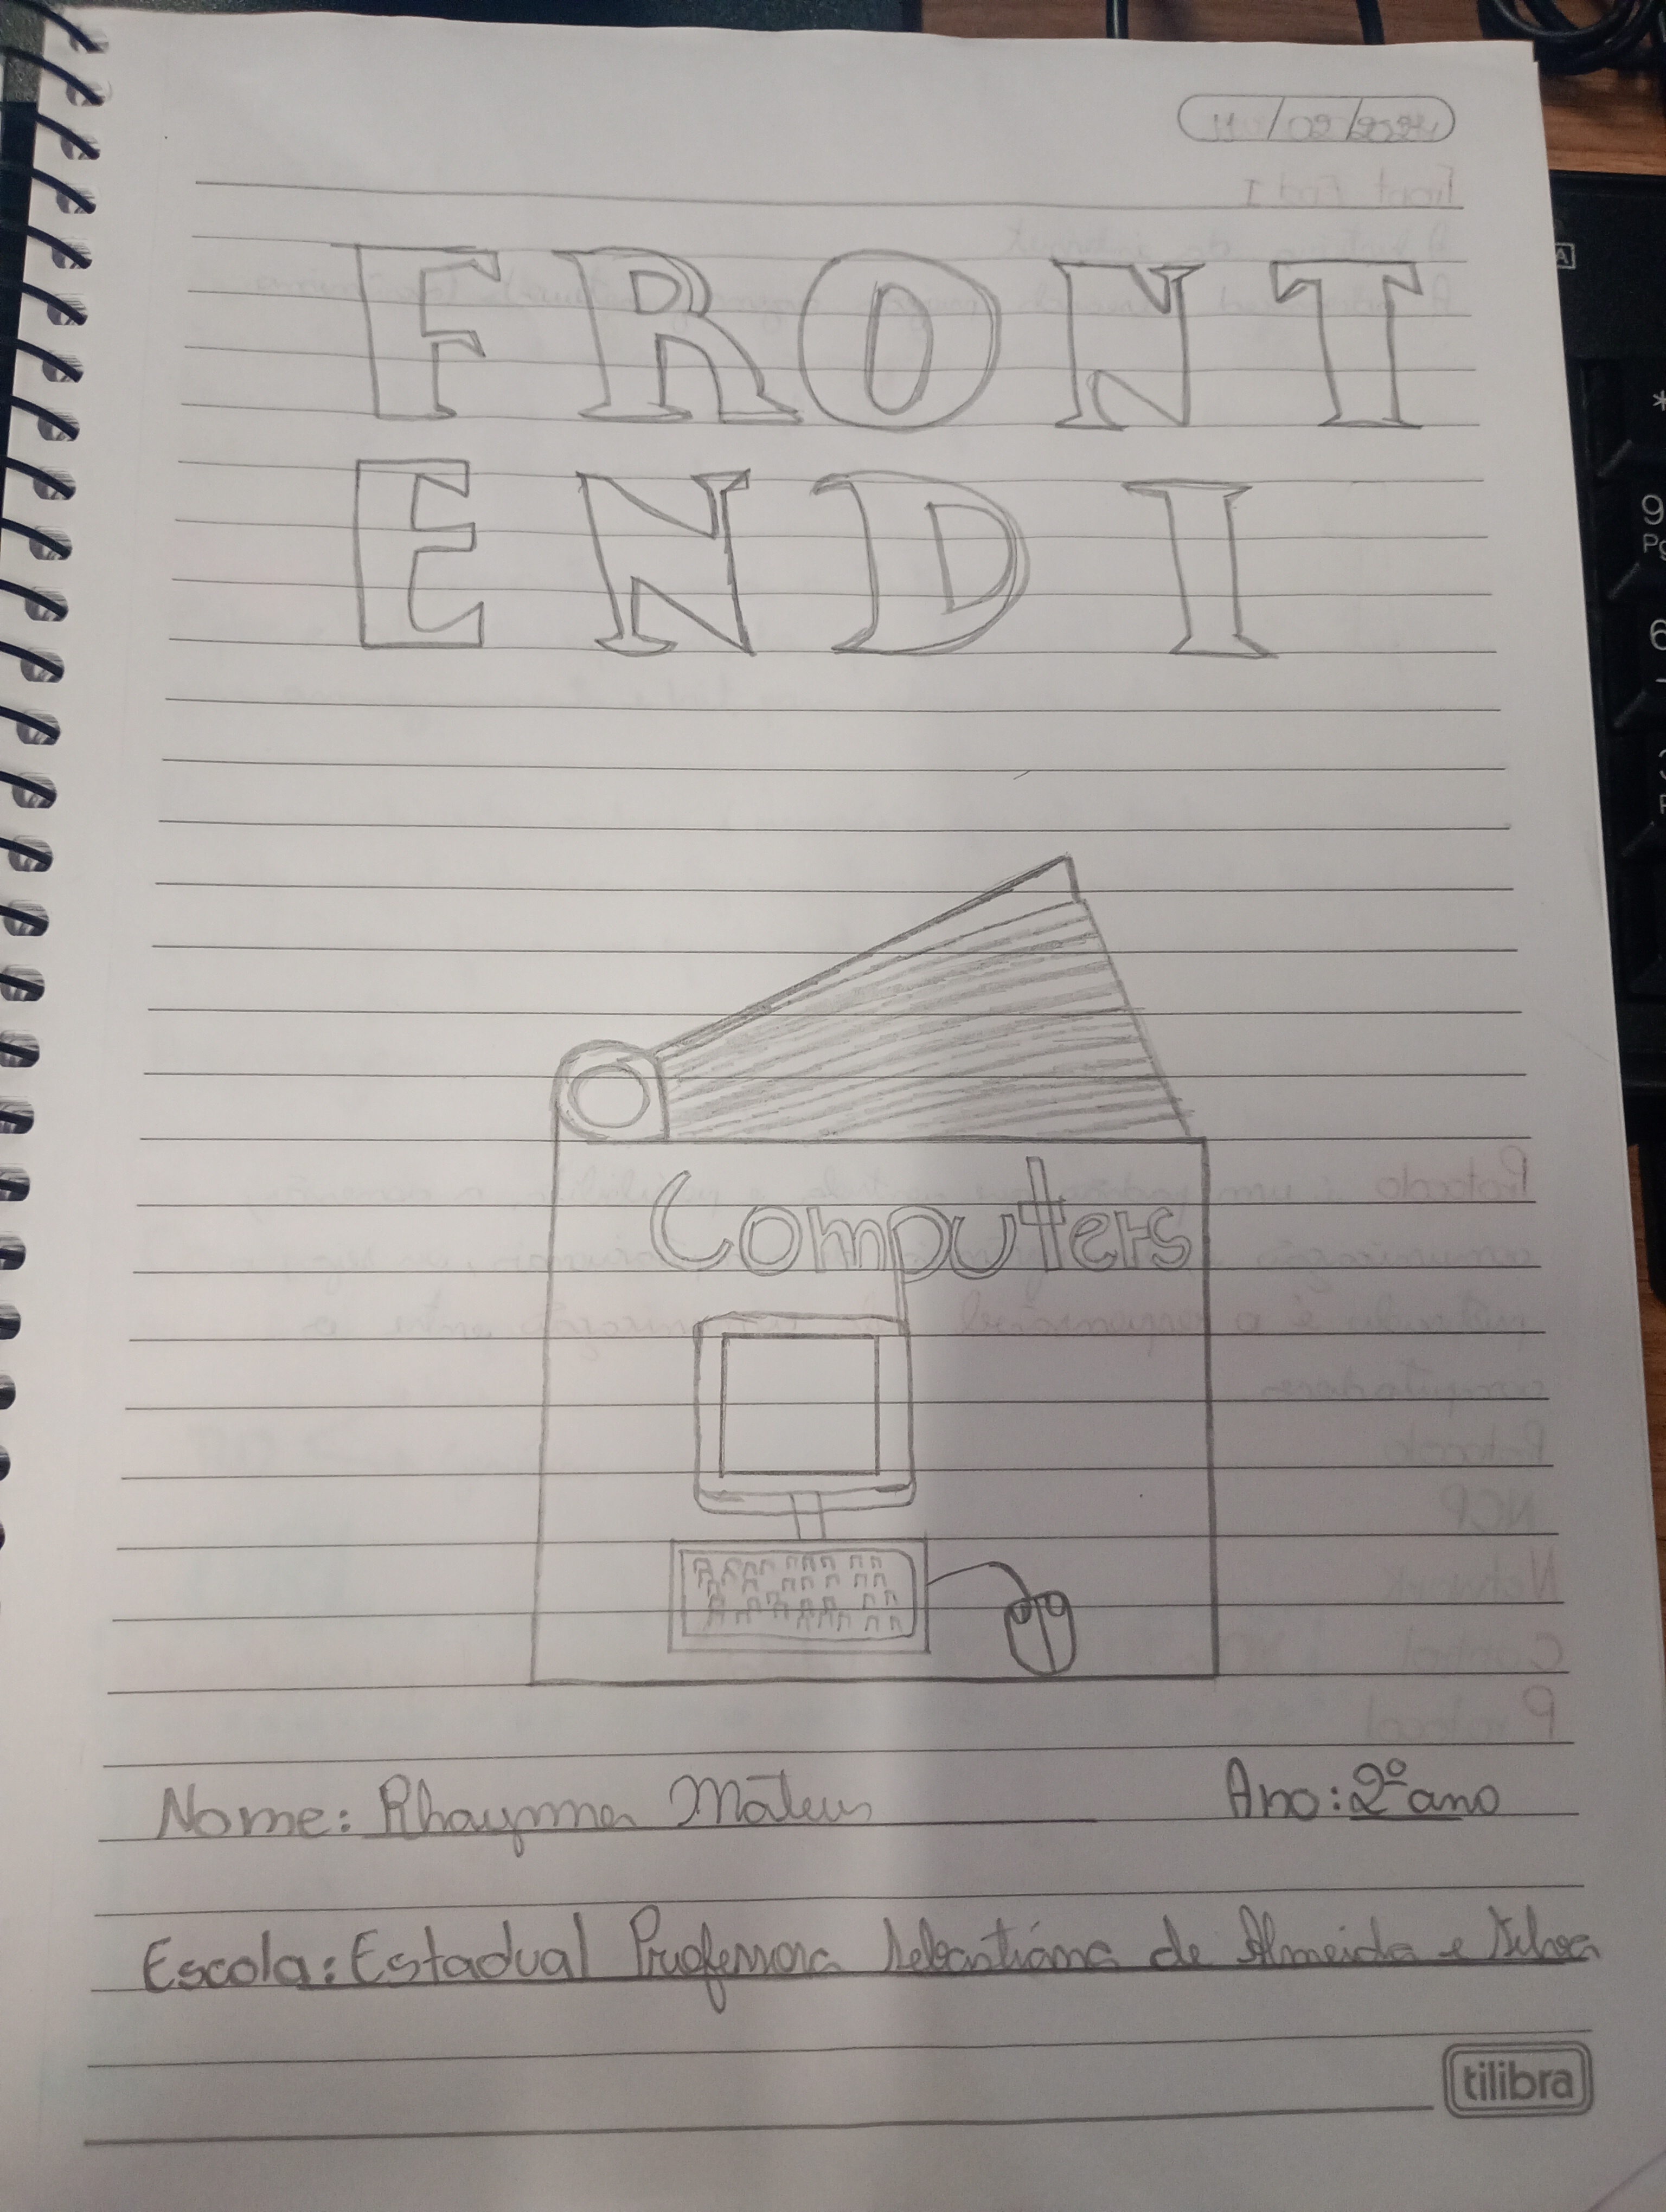 FRONT
END I
Computers
Nome: Rhaynna Mateus
Ano: 2º ano
Escola: Estadual Professora Sebastiana de Almeida e Silva
tilibra
9
6
*